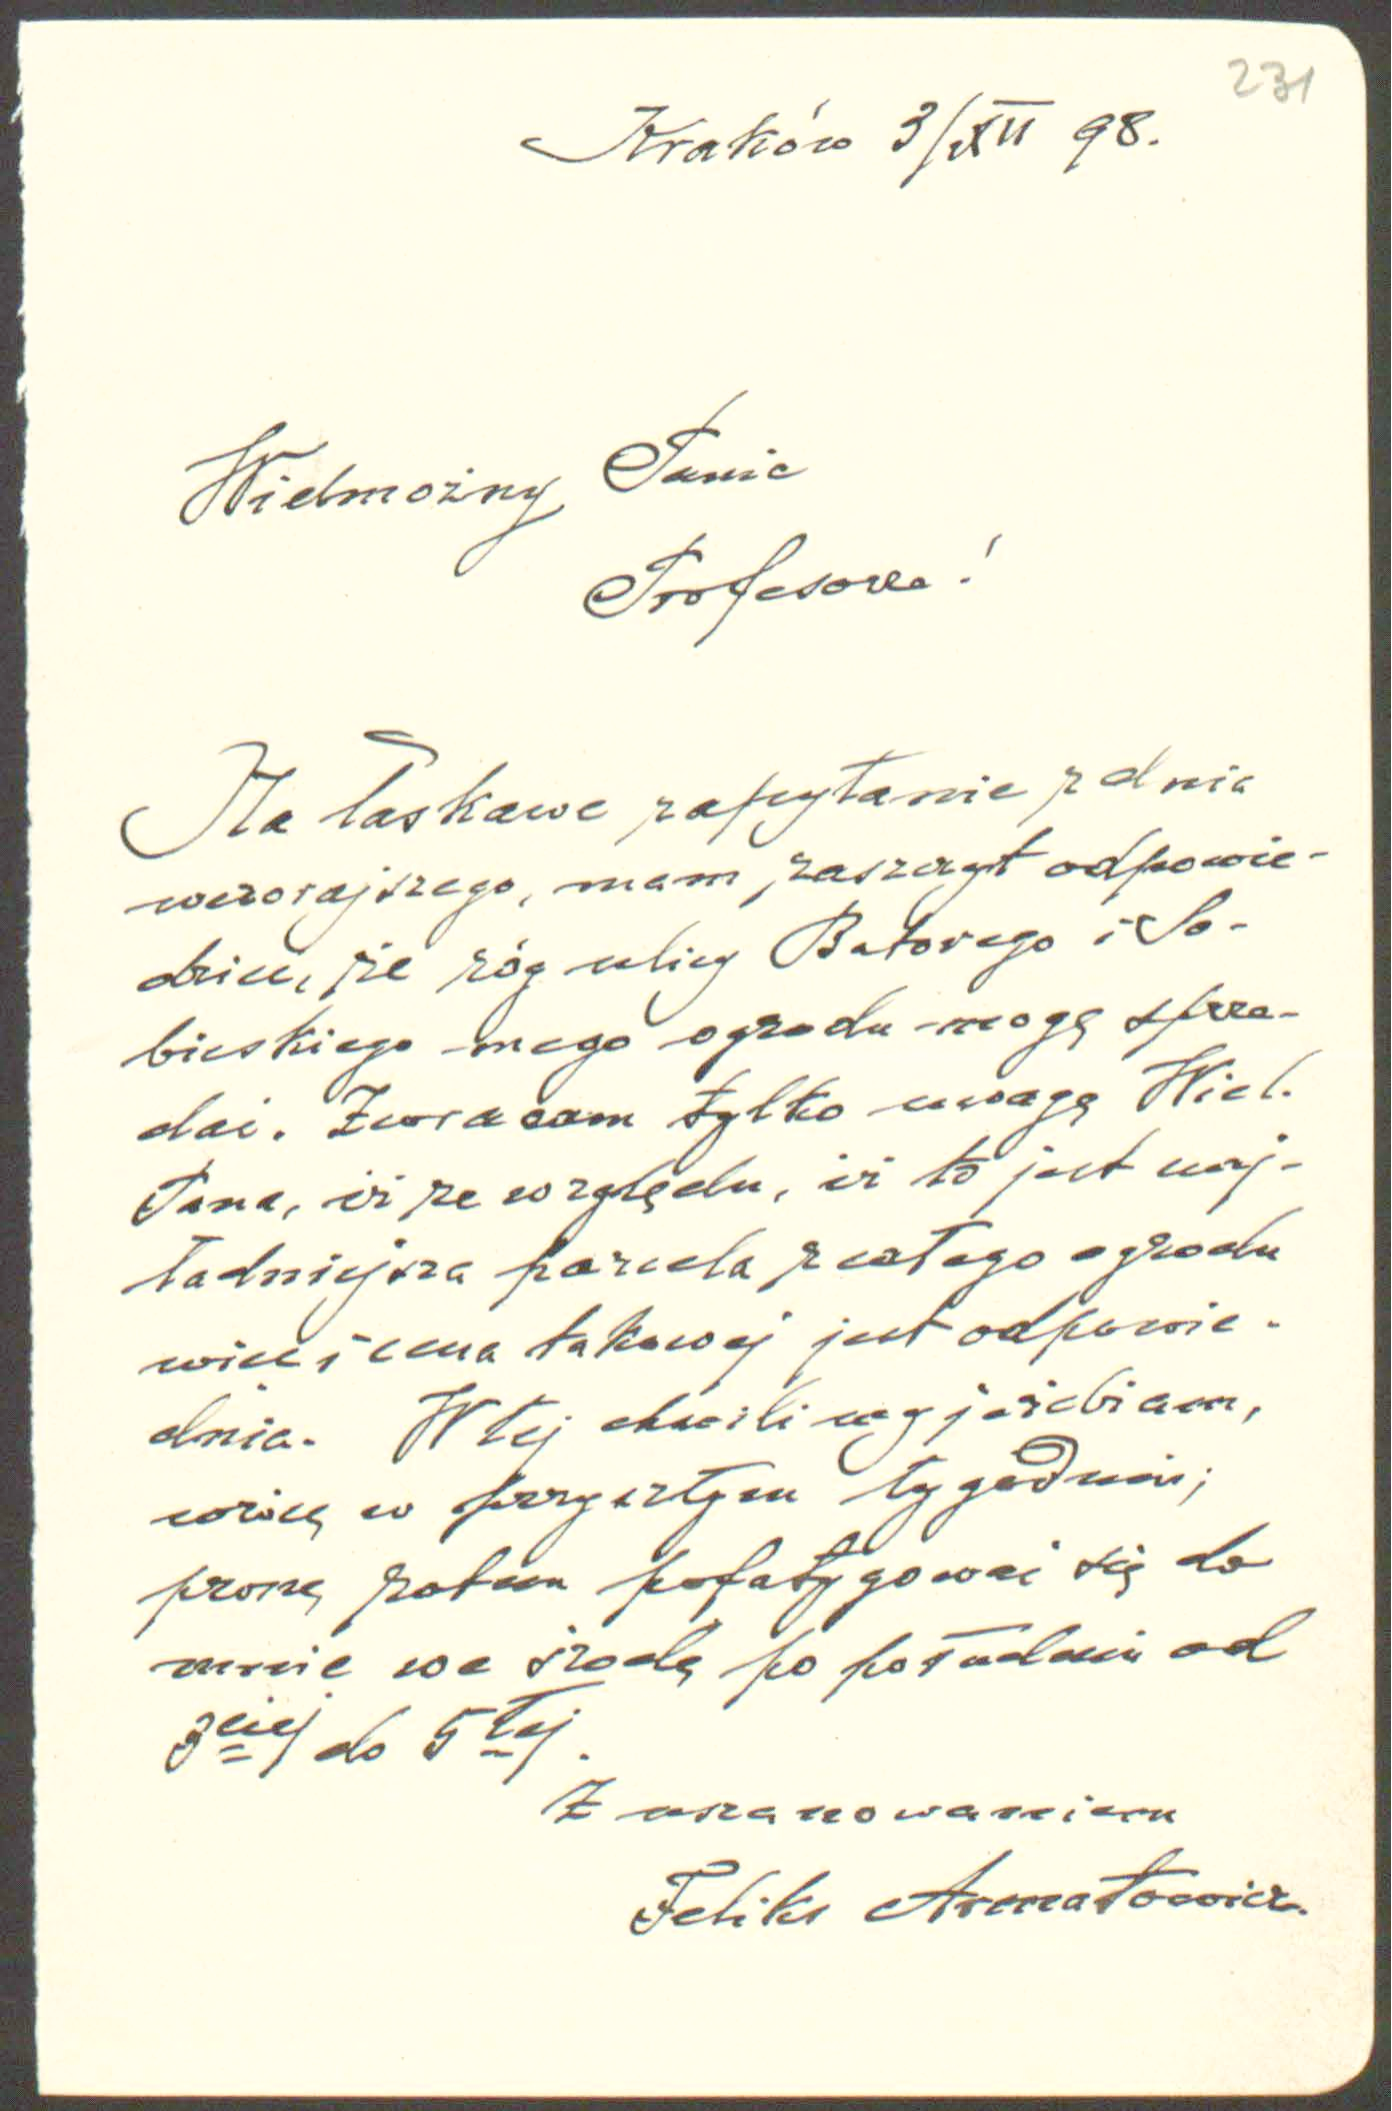 231
Kraków 3/XII 98.
Wielmożny Panie
Profesorze!
Na łaskawe zapytanie z dnia
wczorajszego, mam zaszczyt odpowie-
dzieć, że róg ulicy Batorego i So-
bieskiego mego ogrodu mogę sprze-
dać. Zwracam tylko uwagę Wiel.
Pana, iż ze względu, iż to jest naj-
ładniejsza parcela z całego ogrodu
więc i cena takowej jest odpowie-
dnia. W tej chwili wyjeżdżam,
wrócę w przyszłym tygodniu;
proszę zatem pofatygować się do
mnie we środę po południu od
3ciej do 5tej.
Z uszanowaniem
Feliks Armatowicz.